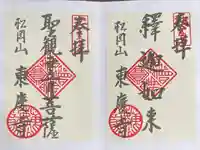 奉拝
釋迦如来
松岡山
東慶寺
奉拝
聖観世音菩薩
松岡山
東慶寺